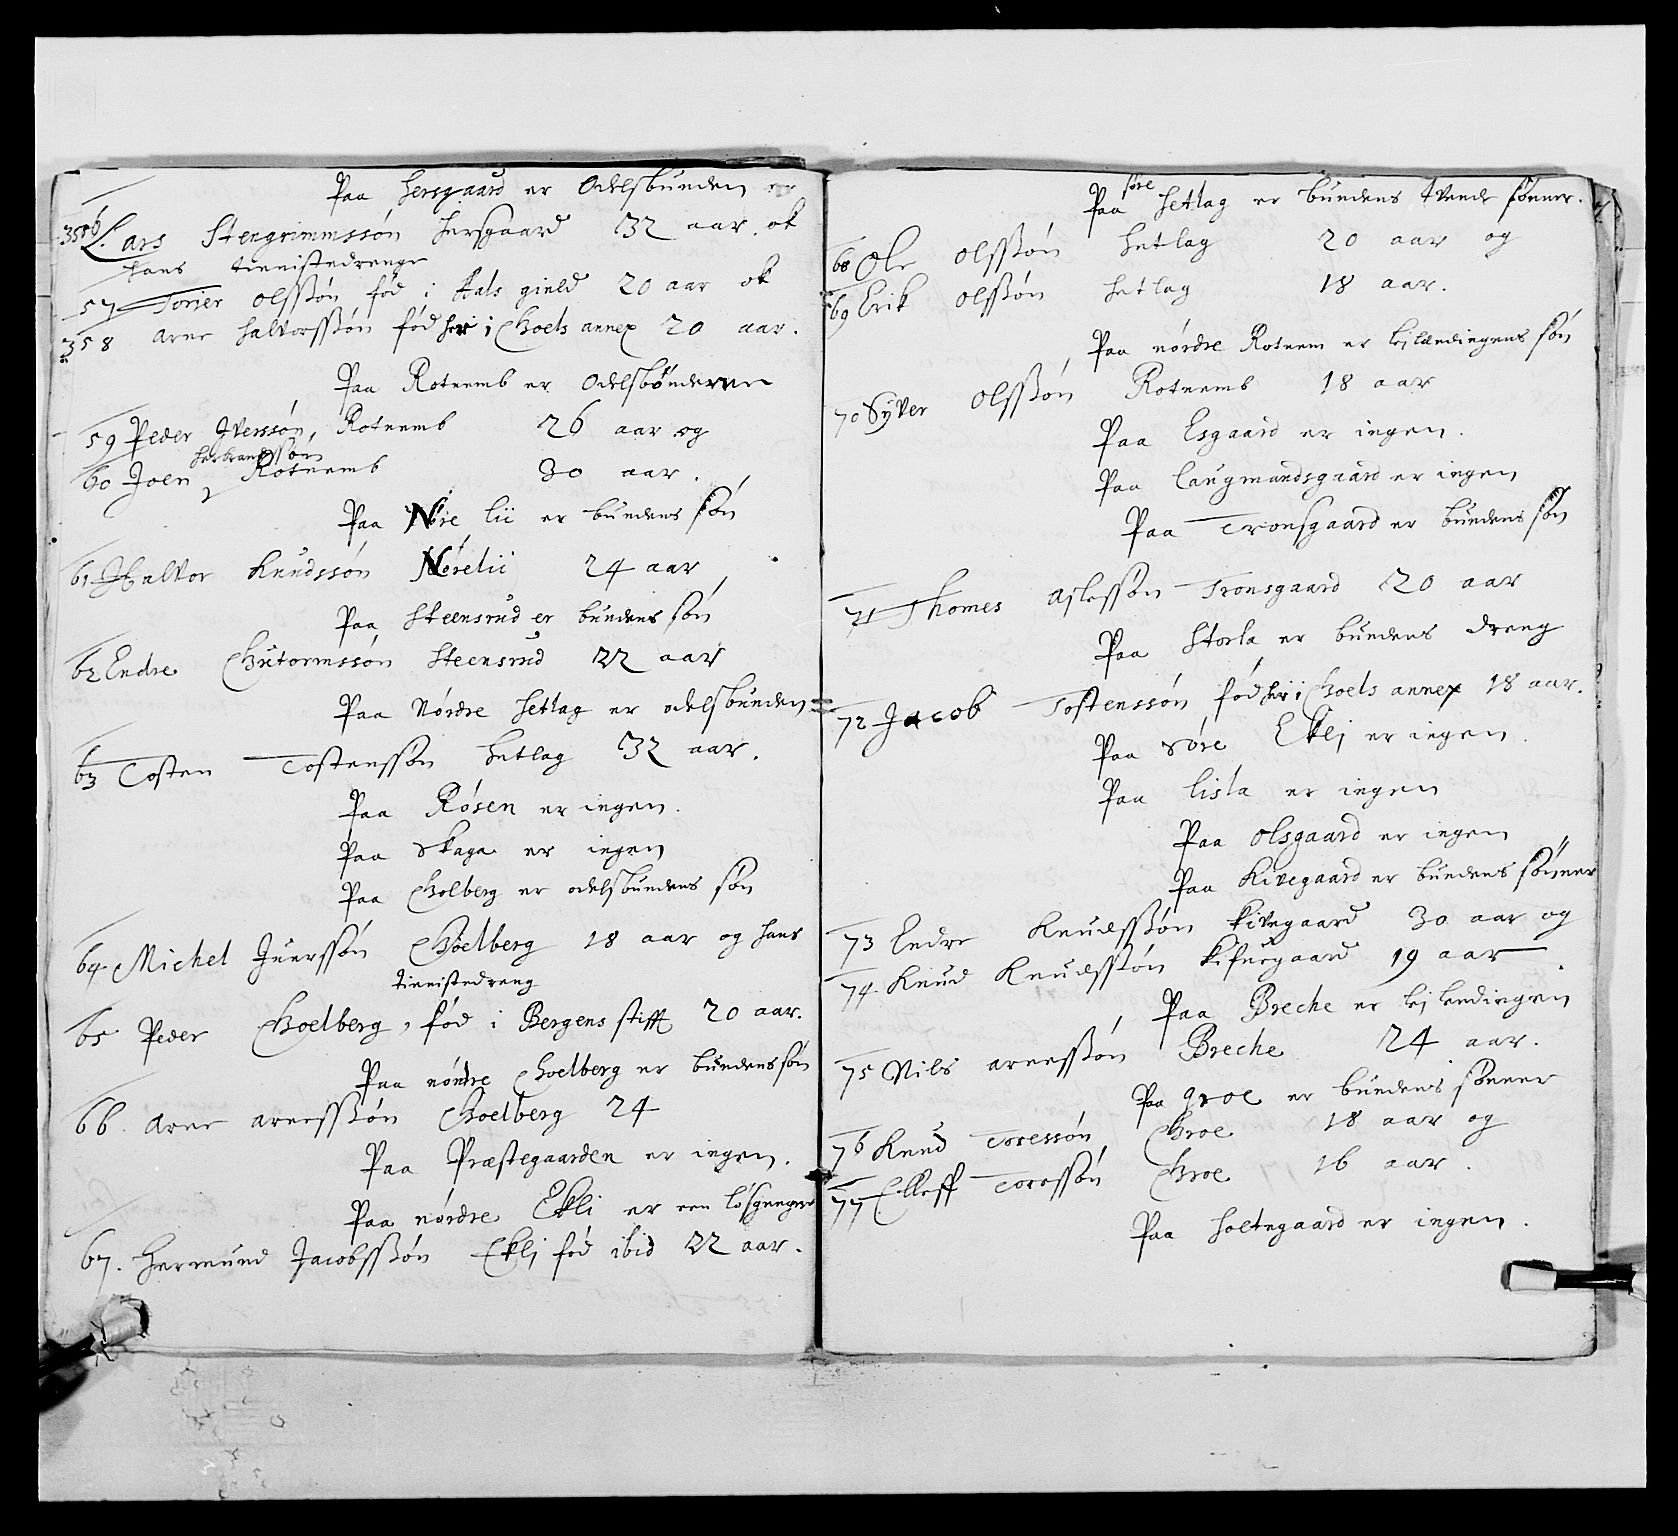 Paa Hersgaard er Odelsbunden er
356 Lars Stengrimmssøn Hersgaard 32 aar ok
hans tienistedrenge
57 Torier Olssøn fød i Aals gield 20 aar ok
358 Arne Halvorssøn fød her i Goels annex 20 aar.
Paa Rotnemb er Odelsbønderne
59 Peder Iverssøn, Rotnemb 26 aar og
herbrandssøn
60 Joen Rotnemb 30 aar.
Paa Nøre lii er bundens søn
61 Halvor Knudssøn Nørelii 24 aar
Paa Steensrud er bundens søn
62 Endre Gutormssøn Steensrud 22 aar
Paa Nørdre Hetlag er odelsbunden
63 Tosten Tostenssøn Hetlag 32 aar.
Paa Røsen er ingen.
Paa Skaga er ingen
Paa Golberg er odelsbundens søn
64 Michel Juerssøn Goelberg 18 aar og hans
tienistedreng
65 Peder Goelberg, fød i Bergens stifft 20 aar.
Paa nørdre Goelberg er bundens søn
66. Arne arnessøn Goelberg 24
Paa Præstegaarden er ingen.
Paa nørdre Ekli er een løsgenger
67. Hermund Jacobssøn Eklj fød ibid 22 aar.
søre
Paa Hetlag er bundens tvende sønner.
68 Ole Olssøn Hetlag 20 aar og
69 Erik Olssøn Hetlag 18 aar.
Paa nørdre Rotnem er lejlendingens søn
70 Syver Olssøn Rotnemb 18 aar
Paa Esgaard er ingen.
Paa Laugmandsgaard er ingen
Paa Tronsgaard er bundens søn
71 Thomes Aslessøn Tronsgaard 20 aar
Paa Storla er bundens dreng
72 Jacob Tostenssøn fød her i Goels annex 18 aar.
Paa Søre Eklj er ingen.
Paa Lisla er ingen
Paa Olsgaard er ingen
Paa Kivegaard er bundens sønner
73 Endre Knudssøn Kivegaard 30 aar og
74 Knud Knudssøn Kifuegaard 19 aar.
Paa Breche er lejlendingen
75 Nils arnessøn Breche 24 aar.
Paa groe er bundens sønner
76 Knud Toressøn Groe 18 aar og
77 Elleff Toressøn Groe 16 aar.
Paa Holtegaard er ingen.